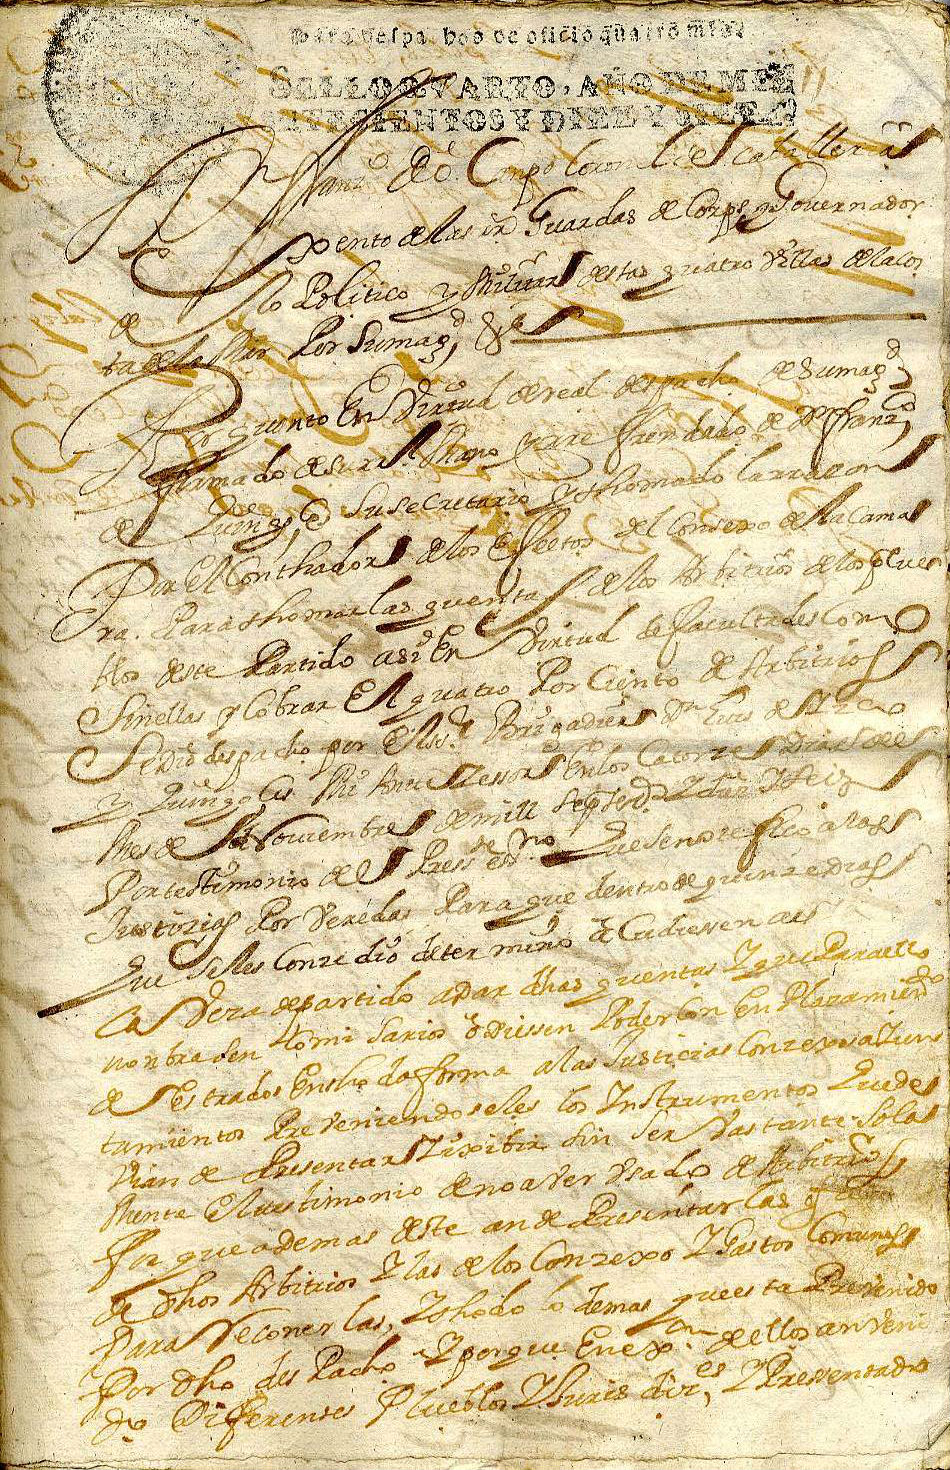 Para despachos de oficio quatro mrs.
SELLO QVARTO, AÑO DE MIL
SETECIENTOS Y DIEZ Y SIETE.
Dn Franco Campo Coronel de Caballerias
Exento de las Rs Guardas de Corps y Governador
de lo Politico y Militar destas quatro Villas de la cos
ta de la Mar Por su magd &a
Por quanto En Virtud de real despacho de su magd
firmado de su real Mano y refrendado de Dn Franco
de su Secretario y thomado la razon
Por El Contador de los Efectos del Consexo de la Cama
ra. Para thomar las quentas de los Arbitrios de los Pue
blos deste Partido asi En Virtud de facultades como
Sin ellas y Cobrar El quatro Por Ciento de Arbitrios
Se Dio despacho por El Sr Brigadier Dn Luis de
y Mi Antezessor En los Catorze Dias del
Mes de Noviembre de mill setezs y Diez y seis
Por testimonio del Presste essno Que se notifico a las
Justicias Por Veredas Para que dentro de quinze dias
Que se les Conzedio de termino acudiessen a la
Cavezera de partido a dar dhas quentas Y que Para ello
nombrasen Comisarios o diessen Poder con Enplazamiento
de Estrados En shada forma a las Justicias Conzexos Aiun
tamientos Preveniendoseles los Instrumentos Que de
vian de Presentar Y exibir sin ser Vastante sola
mente El testimonio de no aver Usado de Arbitrios
Por que ademas deste an de Presentar las
de dhos Arbitrios Y las de los Conzexo Y Gastos Comunes
Para Reconerlas, Y thodo lo demas que esta Prevenido
Por dho desPacho Y porque En exon de ellos an Veni
do Diferentes Pueblos Y Jurisdizes, Y Presentado